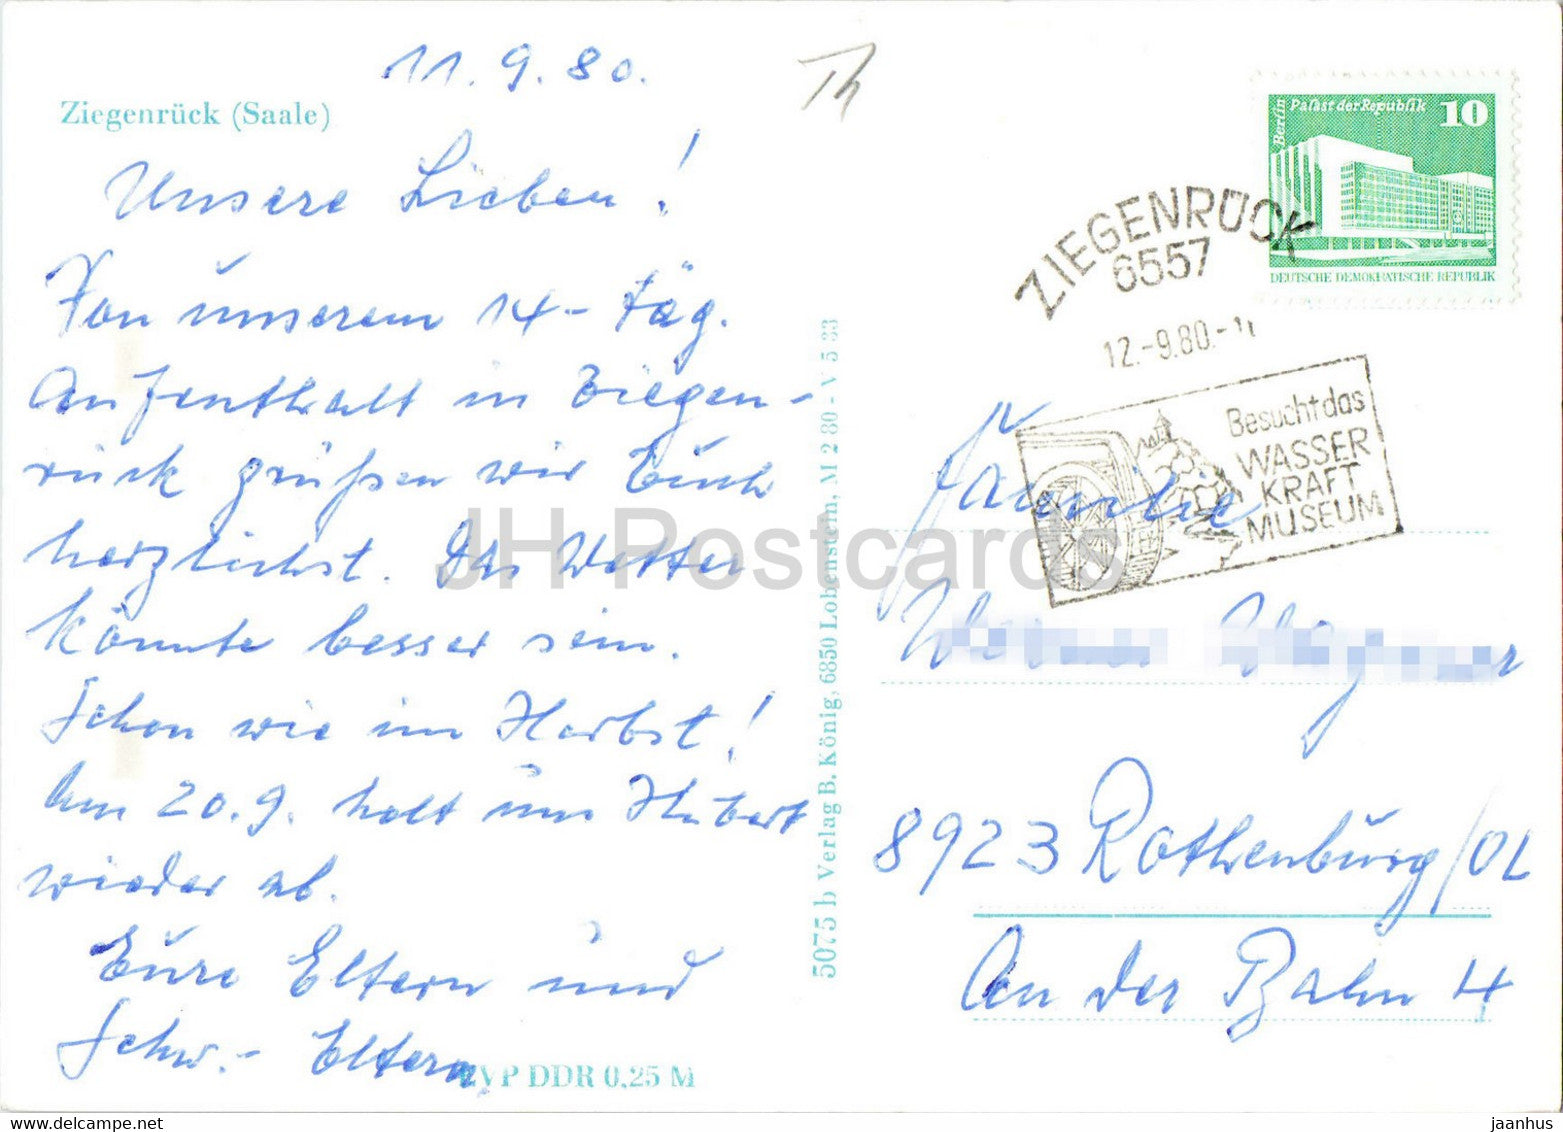 11.9.80.
Ziegenrück (Saale)
Unsere Lieben!
Von unserem 14-täg.
Aufenthalt in Ziegen-
rück grüßen wir Euch
herzlichst. Das Wetter
könnte besser sein.
Schon wie im Herbst!
Am 20.9. holt uns Hubert
wieder ab.
Eure Eltern und
Schw.- Eltern
EVP DDR 0,25 M
5075 b Verlag B. König, 6850 Lobenstein, M 2 80 - V 5 33
Th
Berlin Palast der Republik 10
DEUTSCHE DEMOKRATISCHE REPUBLIK
ZIEGENRÜCK
6557
12.-9.80.-11
Besucht das
WASSER
KRAFT
MUSEUM
Familie
8923 Rothenburg/OL
An der Bahn 4
JH Postcards
delcampe.net
jaanhus